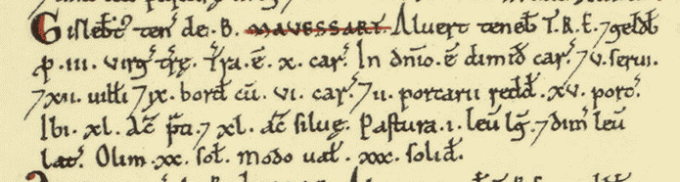 Gislebt' ten' de. B. MAVESSART. Aluert teneb T.R.E. 7 geldb
p. iii. virg' træ. Tra. ē. x. car'. In dnio. ē dimid car'. 7 v. serui.
7 xii. uilli 7 ix. bord cū. vi. car'. 7 ii. porcarii redd. xv. porc'.
Ibi. xl. ac pti. 7 xl. ac siluę. Pastura. i. leu lg. 7 dim' leu
lat'. Olim xx. sol. modo ual. xxx. solid.